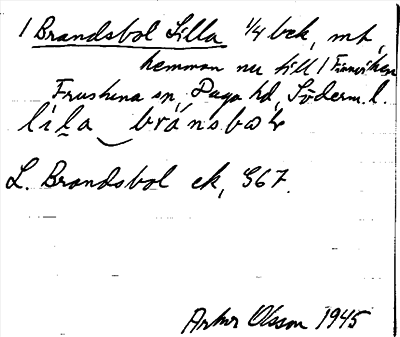 1 Brandsbol Lilla 1/4 bek, mt,
hemman nu till 1 Finnviken
Frustuna sn, Daga hd, Söderm. l.
lila bránsbol
L. Brandsbol ek, S67.
Artur Olsson 1945